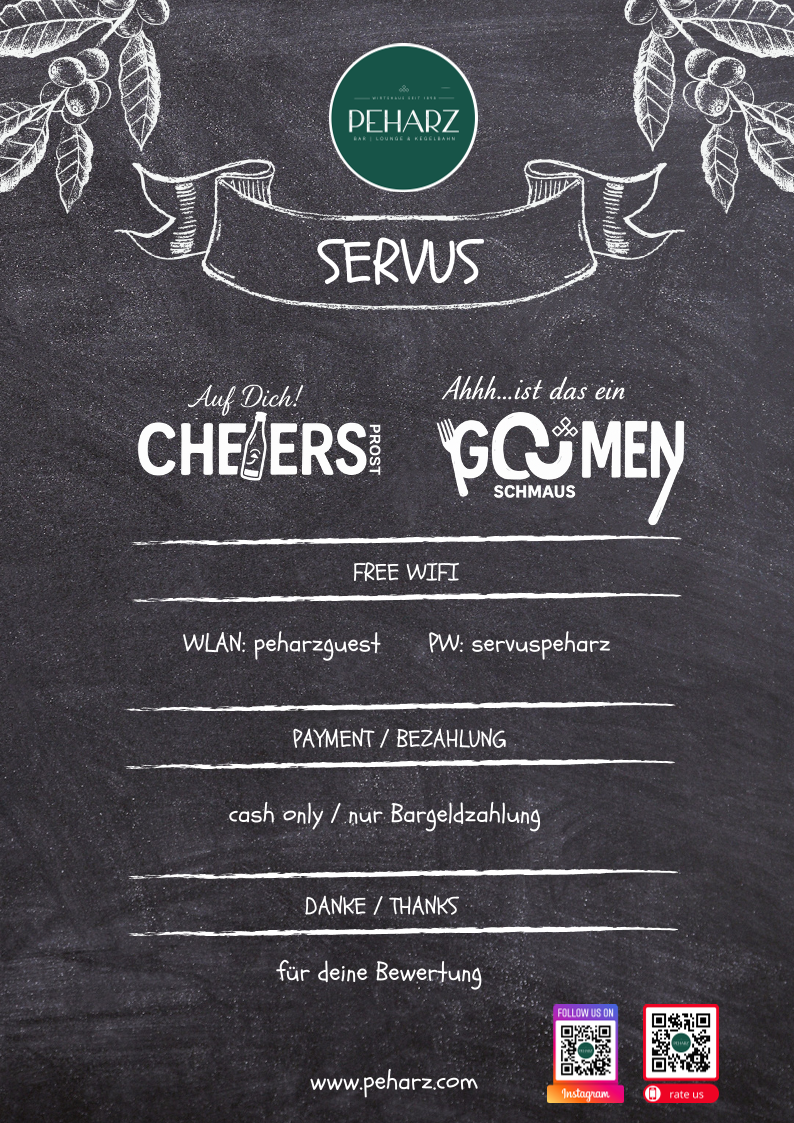 WIRTSHAUS SEIT 1896
PEHARZ
BAR | LOUNGE & KEGELBAHN
SERVUS
Auf Dich!
CHEERS
PROST
Ahhh...ist das ein
GAUMEN
SCHMAUS
FREE WIFI
WLAN: peharzguest PW: servuspeharz
PAYMENT / BEZAHLUNG
cash only / nur Bargeldzahlung
DANKE / THANKS
für deine Bewertung
FOLLOW US ON
PEHARZ
Instagram
PEHARZ
rate us
www.peharz.com